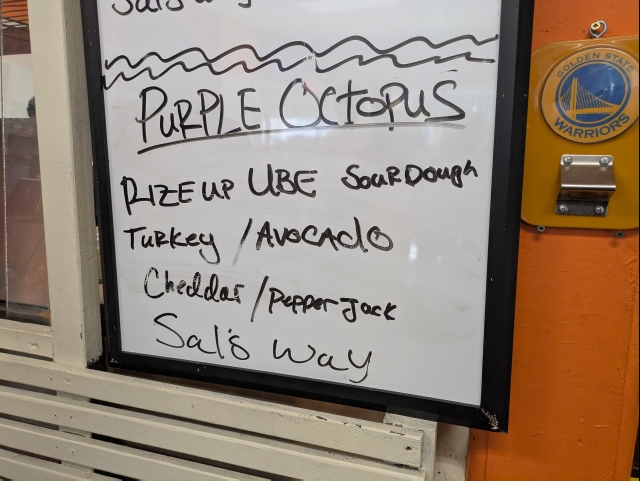 PURPLE OCTOPUS
RIZE UP UBE SOURDOUGH
TURKEY / AVOCADO
Cheddar / Pepper Jack
Sal's way
GOLDEN STATE
WARRIORS